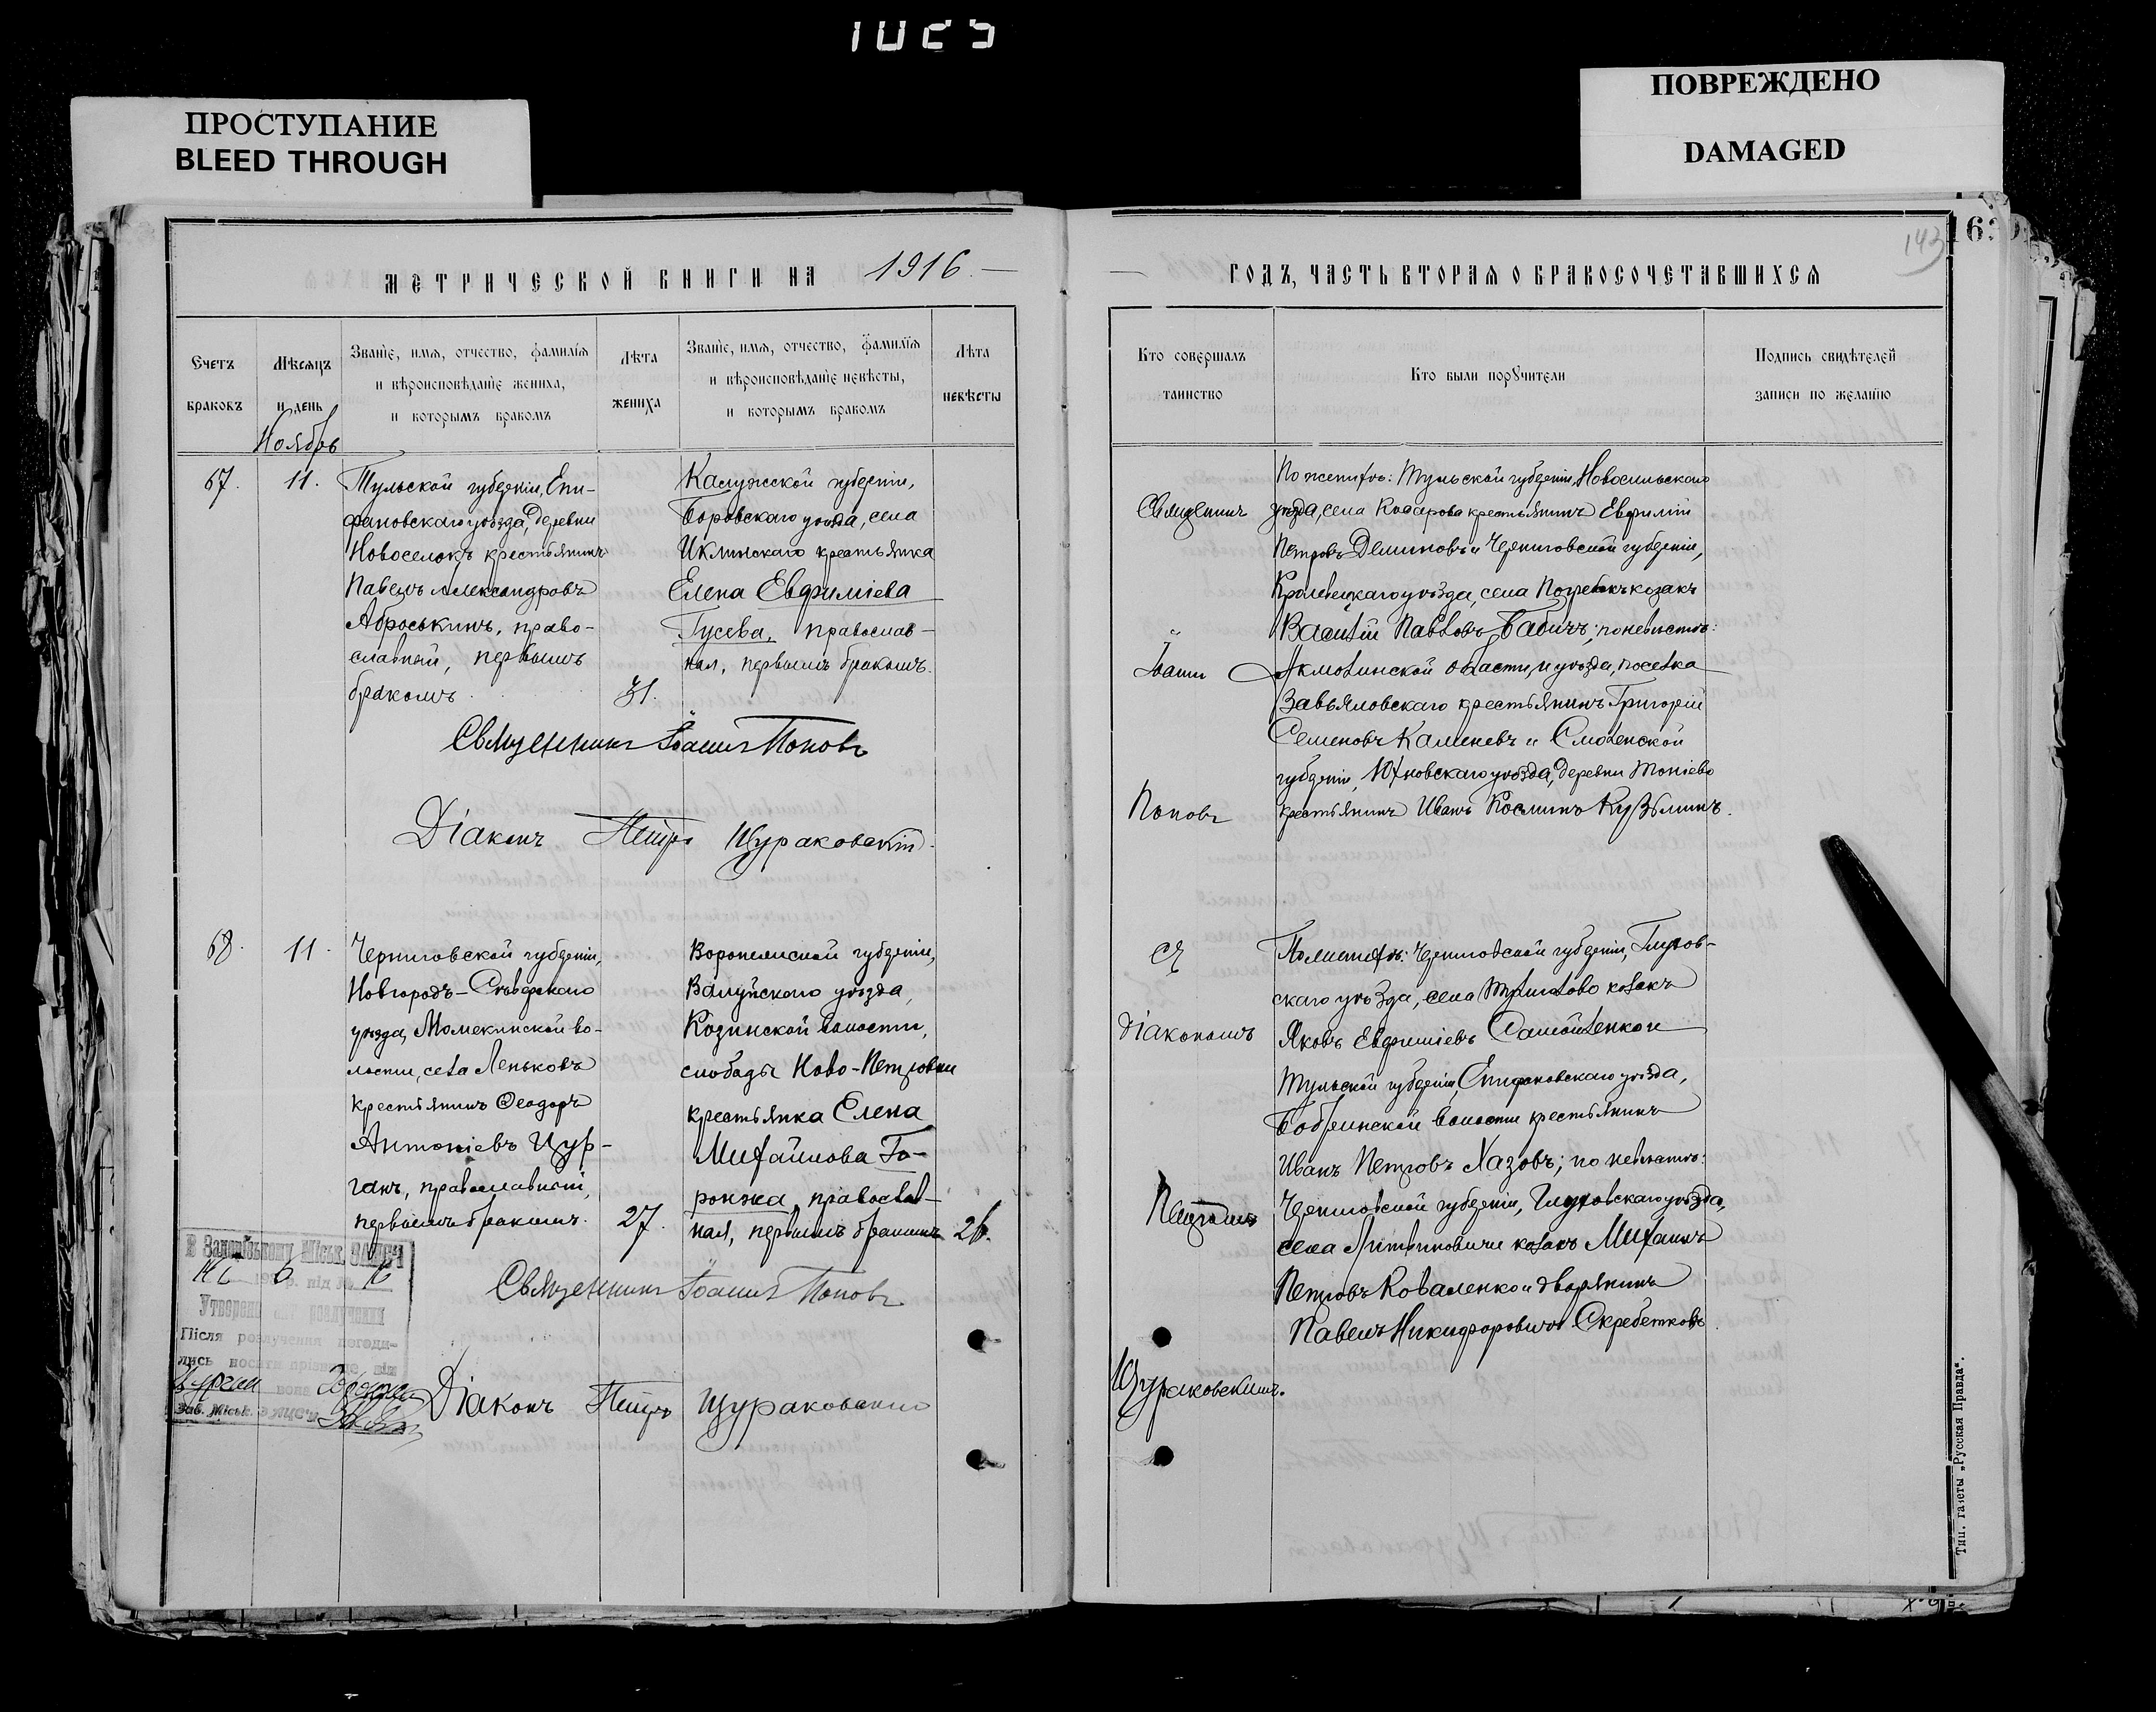 1025
ПРОСТУПАНИЕ
BLEED THROUGH
ПОВРЕЖДЕНО
DAMAGED
МЕТРИЧЕСКОЙ КНИГИ НА 1916.
Счетъ браковъ
Мѣсяцъ и день
Званіе, имя, отчество, фамилія
и вѣроисповѣданіе жениха,
и которымъ бракомъ
Лѣта жениха
Званіе, имя, отчество, фамилія
и вѣроисповѣданіе невѣсты,
и которымъ бракомъ
Лѣта невѣсты
Ноябрь
67.
11.
Тульской губерніи, Епи-
фановскаго уѣзда, деревни
Новоселокъ крестьянинъ
Павелъ Александровъ
Аброськинъ, право-
славный, первымъ
бракомъ.
31.
Калужской губерніи,
Боровскаго уѣзда, села
Иклинскаго крестьянка
Елена Евфиміева
Гусева, православ-
ная, первымъ бракомъ.
Священникъ Іоаннъ Поповъ
Діаконъ Петръ Щураковскій
68.
11.
Черниговской губерніи,
Новгородъ-Сѣверскаго
уѣзда, во-
лости, села Леньковъ
крестьянинъ Ѳеодоръ
Антоніевъ Цур-
ганъ, православный,
первымъ бракомъ.
27.
Воронежской губерніи,
Валуйскаго уѣзда,
Козинской волости,
слободы Ново-Петровки
крестьянка Елена
Михайлова Го-
ронжа, православ-
ная, первымъ бракомъ
26.
Священникъ Іоаннъ Поповъ
Діаконъ Петръ Щураковскій
Після розлучення погоди-
лись носити прізвище він
Цурган вона
143
ГОДЪ, ЧАСТЬ ВТОРАЯ О БРАКОСОЧЕТАВШИХСЯ
Кто совершалъ
таинство
Кто были поручители
Подпись свидѣтелей
записи по желанію
Священникъ
Іоаннъ
Поповъ
По женихѣ: Тульской губерніи, Новосильскаго
уѣзда, села крестьянинъ Евфимій
Петровъ Деминовъ и Черниговской губерніи,
Кролевецкаго уѣзда, села Погребокъ козакъ
Василій Павловъ Бабичъ; по невѣстѣ:
Акмолинской области, и уѣзда, поселка
Завьяловскаго крестьянинъ Григорій
Семеновъ Каменевъ и Смоленской
губерніи, Юхновскаго уѣзда, деревни
крестьянинъ Иванъ Косминъ Кузьминъ.
съ
діакономъ
Петромъ
Щураковскимъ.
По женихѣ: Черниговской губерніи, Глухов-
скаго уѣзда, села козакъ
Яковъ Евфиміевъ Самойленко и
Тульской губерніи, Епифановскаго уѣзда,
Бобринской волости крестьянинъ
Иванъ Петровъ Хазовъ; по невѣстѣ:
Черниговской губерніи, Глуховскаго уѣзда,
села Литвиновичи козакъ Михаилъ
Петровъ Коваленко и дворянинъ
Павелъ Никифоровичъ Скребетковъ.
Тип. газеты „Русская Правда“.